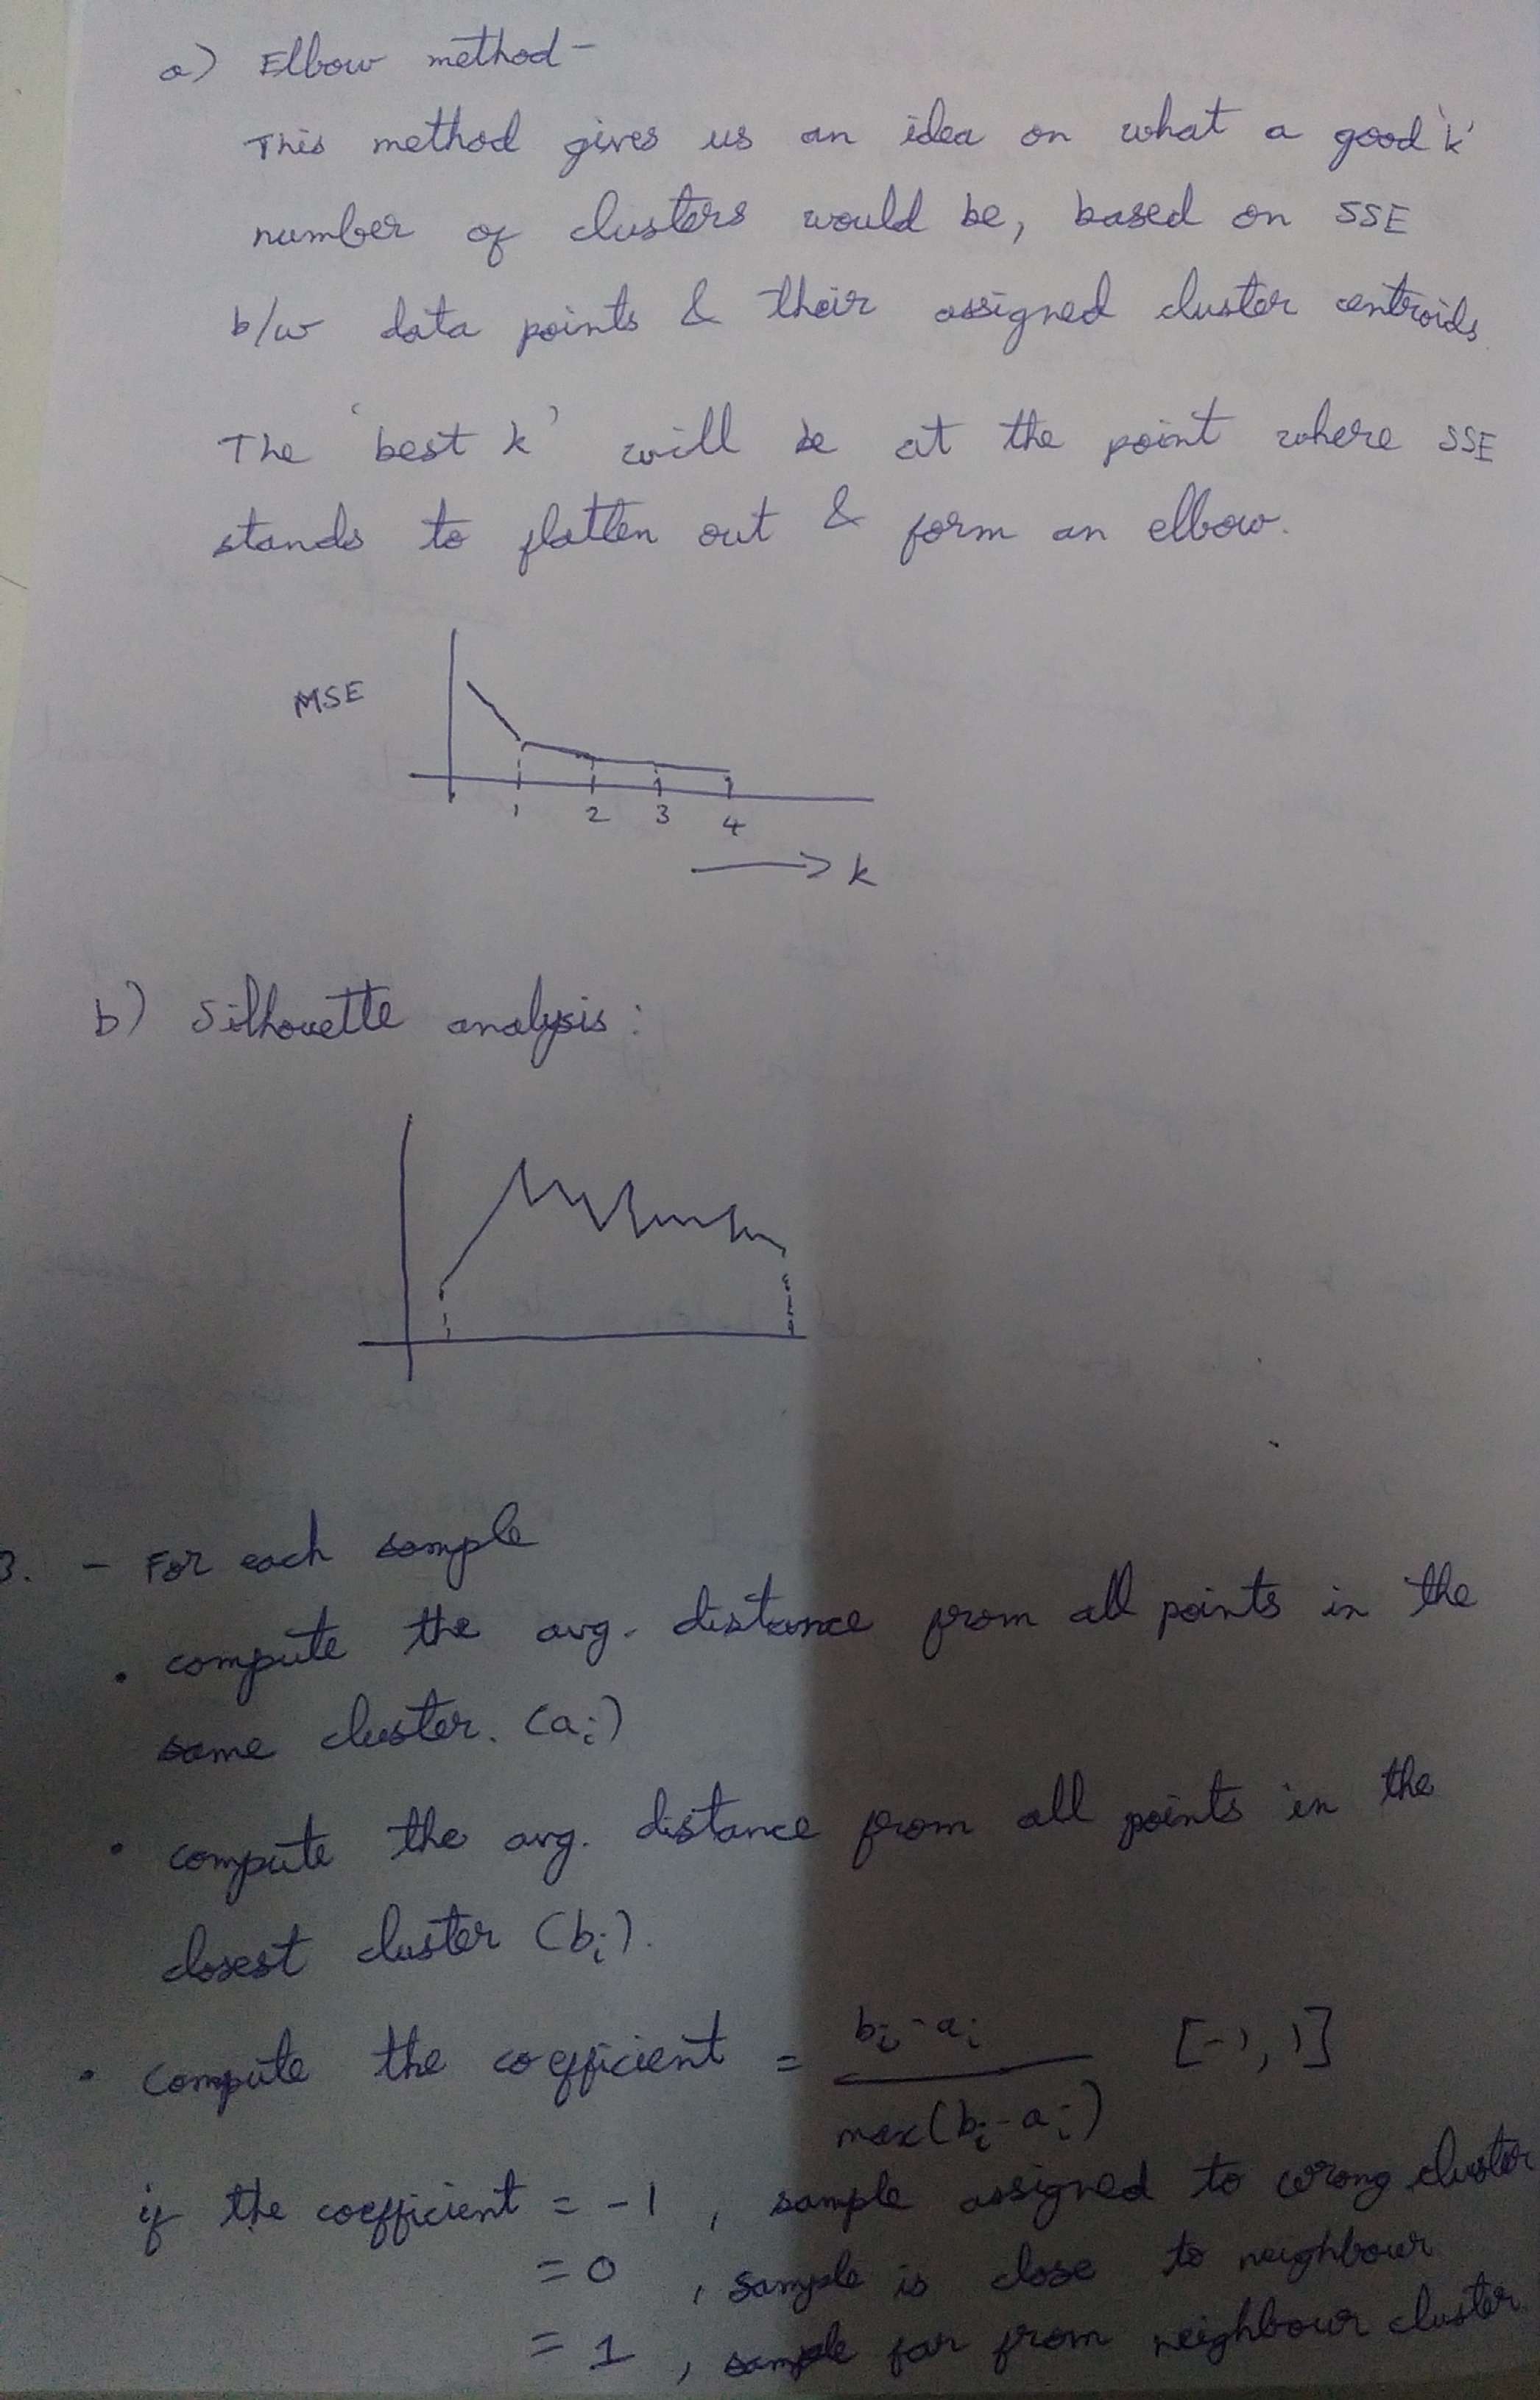 a) Elbow method -
This method gives us an idea on what a good 'k'
number of clusters would be, based on SSE
b/w data points & their assigned cluster centroids.
The 'best k' will be at the point where SSE
stands to flatten out & form an elbow.
MSE
1 2 3 4
→ k
b) Silhouette analysis:
3. - For each sample
• compute the avg. distance from all points in the
same cluster. (ai)
• compute the avg. distance from all points in the
closest cluster (bi).
• compute the coefficient = bi - ai / max(bi - ai) [-1, 1]
if the coefficient = -1, sample assigned to wrong cluster
= 0, sample is close to neighbour
= 1, sample far from neighbour cluster.